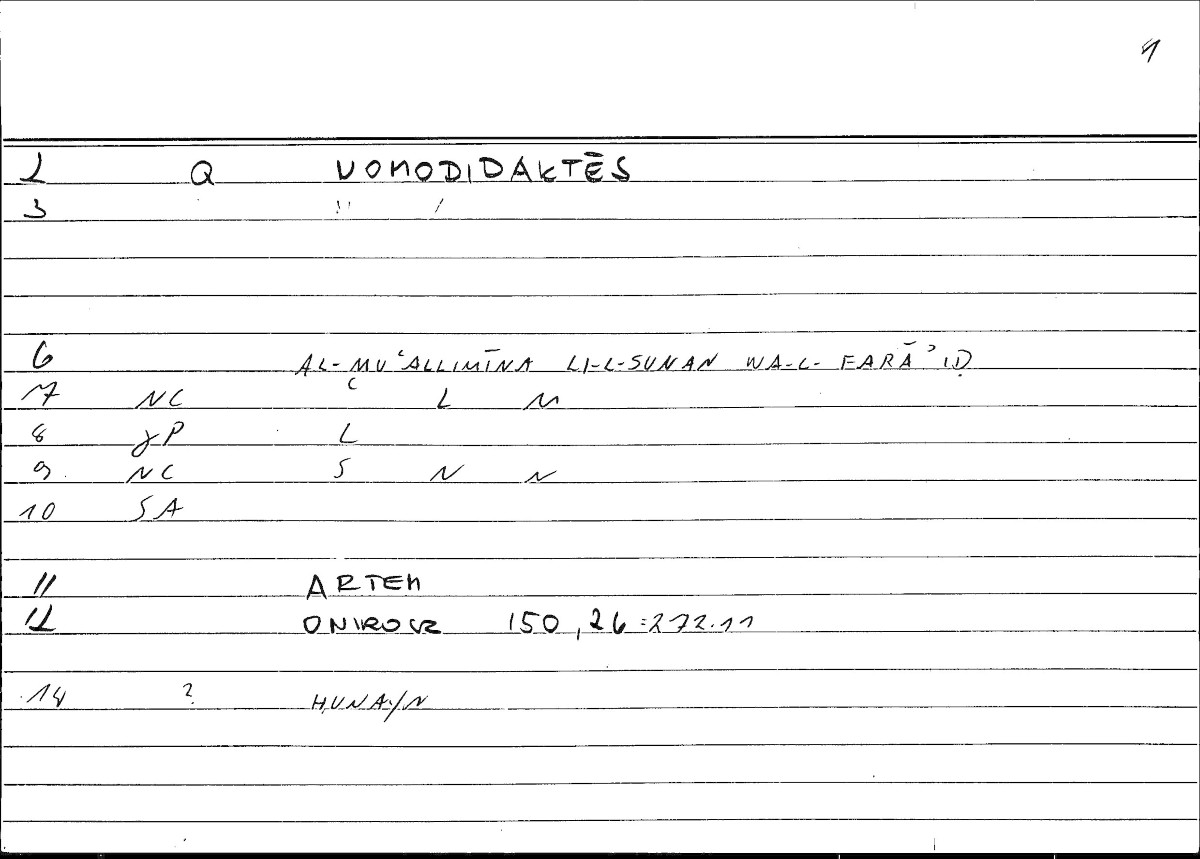 2 Q NOMODIDAKTĒS
3 " /
6 AL-MUʿALLIMĪNA LI-L-SUNAN WA-L-FARĀʾIḌ
7 NC ʿ L M
8 γP L
9 NC S N N
10 SA
11 ARTEM
12 ONIROCR 150,26=272.11
14 ? ḤUNAYN